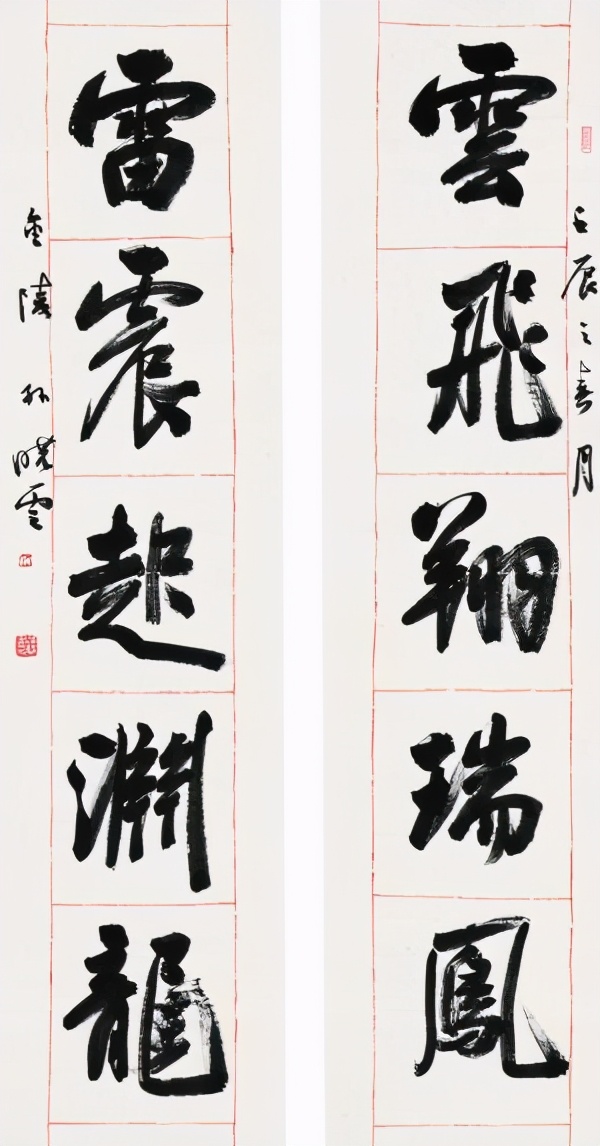 雲飛翔瑞鳳
雷震起淵龍
壬辰之春月
金陵孫曉雲